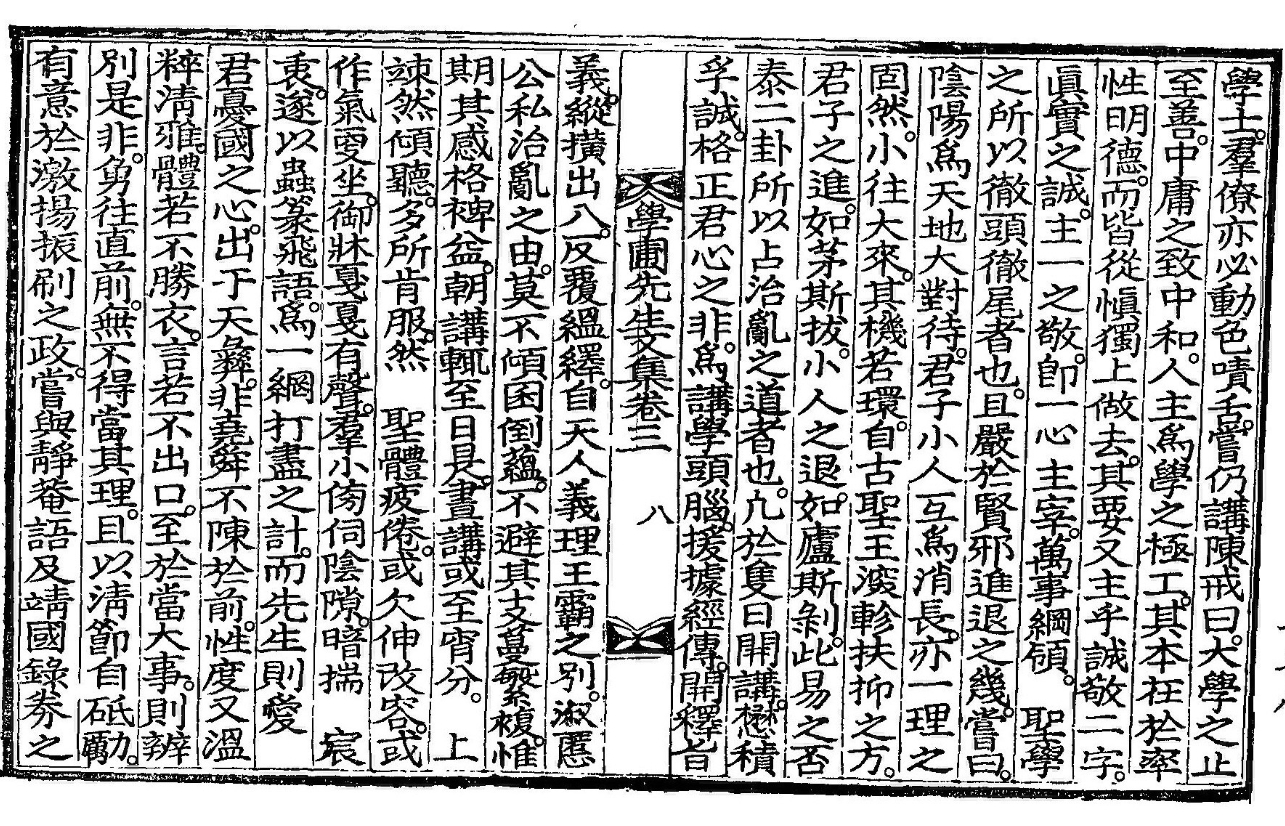 學士。羣僚亦必動色嘖舌。嘗仍講陳戒曰。大學之止
至善。中庸之致中和。人主爲學之極工。其本在於率
性明德。而皆從愼獨上做去。其要又主乎誠敬二字。
眞實之誠。主一之敬。卽一心主宰。萬事綱領。 聖學
之所以徹頭徹尾者也。且嚴於賢邪進退之幾。嘗曰。
陰陽爲天地大對待。君子小人互爲消長。亦一理之
固然。小往大來。其機若環。自古聖王深軫扶抑之方。
君子之進。如茅斯拔。小人之退。如廬斯剝。此易之否
泰二卦所以占治亂之道者也。凡於隻日開講。懋積
孚誠。格正君心之非。爲講學頭腦。援據經傳。開釋旨
學圃先生文集卷三 八
義。縱橫出入。反覆縕繹。自天人義理王霸之別。淑慝
公私治亂之由。莫不傾囷倒蘊。不避其支蔓繁複。惟
期其感格裨益。朝講輒至日昃。晝講或至宵分。 上
竦然傾聽。多所肯服。然 聖體疲倦。或欠伸改容。或
作氣更坐。御牀戛戛有聲。羣小傍伺陰隙。暗揣 宸
衷。遂以蟲篆飛語。爲一網打盡之計。而先生則愛
君憂國之心。出于天彝。非堯舜不陳於前。性度又溫
粹淸雅。體若不勝衣。言若不出口。至於當大事。則辨
別是非。勇往直前。無不得當其理。且以淸節自砥勵。
有意於激揚振刷之政。嘗與靜菴語及靖國錄券之